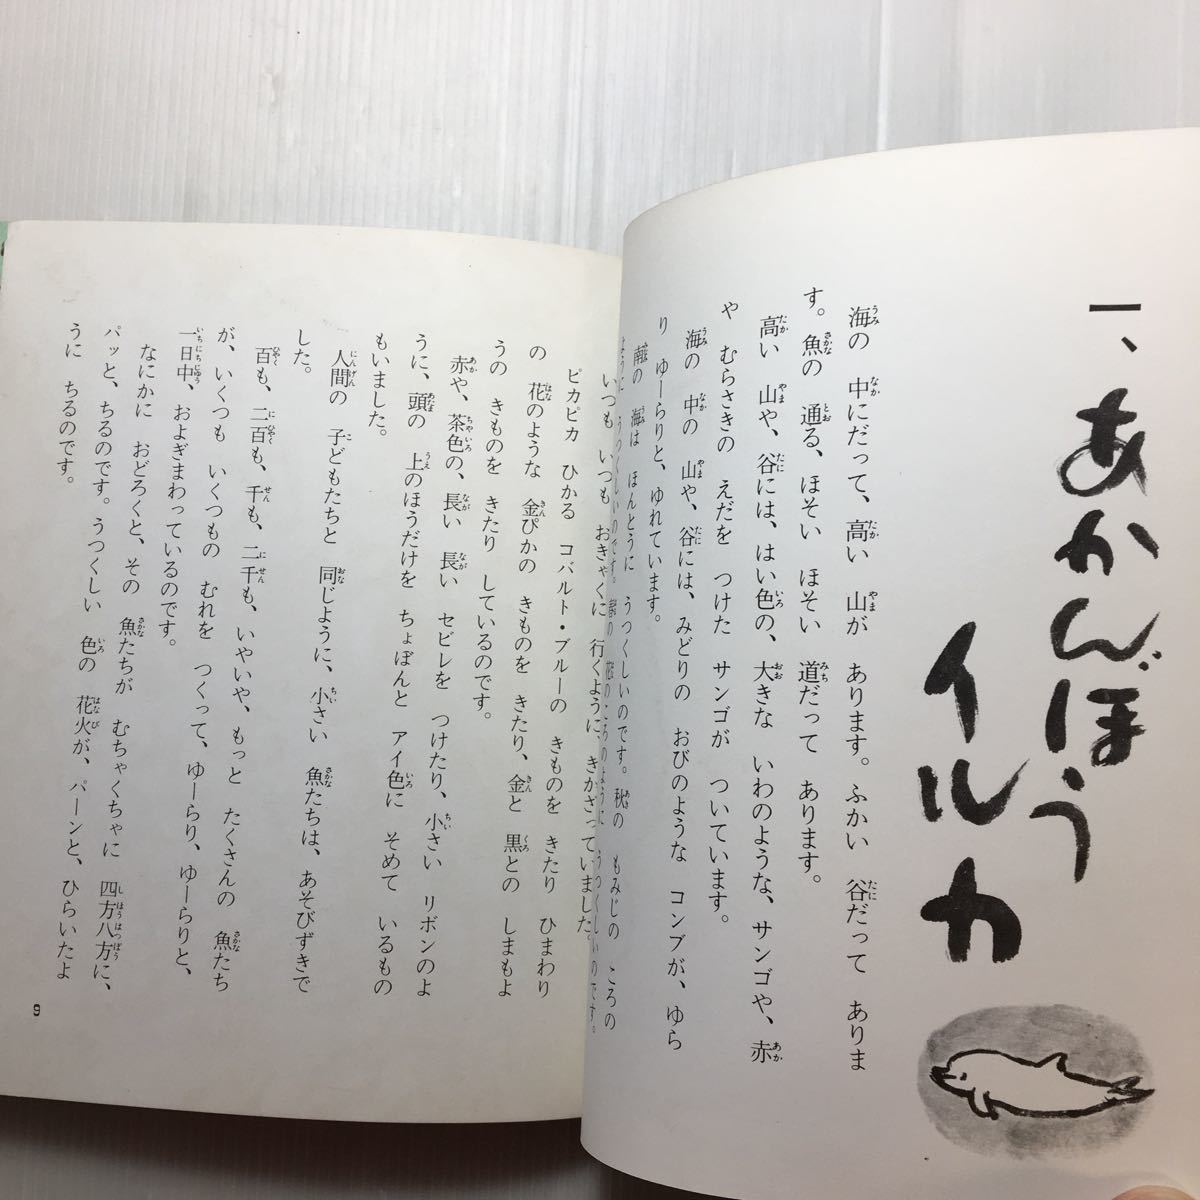 一、あかんぼう
イルカ
海の 中にだって、高い 山が あります。ふかい 谷だって ありま
す。魚の 通る、ほそい ほそい 道だって あります。
高い 山や、谷には、はい色の、大きな いわのような、サンゴや、赤
や むらさきの えだを つけた サンゴが ついています。
海の 中の 山や、谷には、みどりの おびのような コンブが、ゆら
り ゆーらりと、ゆれています。
南の 海は ほんとうに うつくしいのです。秋の もみじの ころの
ように うつくしいのです。春の 花の ころのように うつくしいのです。
いつも いつも おきゃくに 行くように きかざっていました。
ピカピカ ひかる コバルト・ブルーの きものを きたり ひまわり
の 花のような 金ぴかの きものを きたり、金と 黒との しまもよ
うの きものを きたり しているのです。
赤や、茶色の、長い 長い セビレを つけたり、小さい リボンのよ
うに、頭の 上のほうだけを ちょぼんと アイ色に そめて いるもの
もいました。
人間の 子どもたちと 同じように、小さい 魚たちは、あそびずきで
した。
百も、二百も、千も、二千も、いやいや、もっと たくさんの 魚たち
が、いくつも いくつもの むれを つくって、ゆーらり、ゆーらりと、
一日中、およぎまわっているのです。
なにかに おどろくと、その 魚たちが むちゃくちゃに 四方八方に、
パッと、ちるのです。うつくしい 色の 花火が、パーンと、ひらいたよ
うに ちるのです。
9